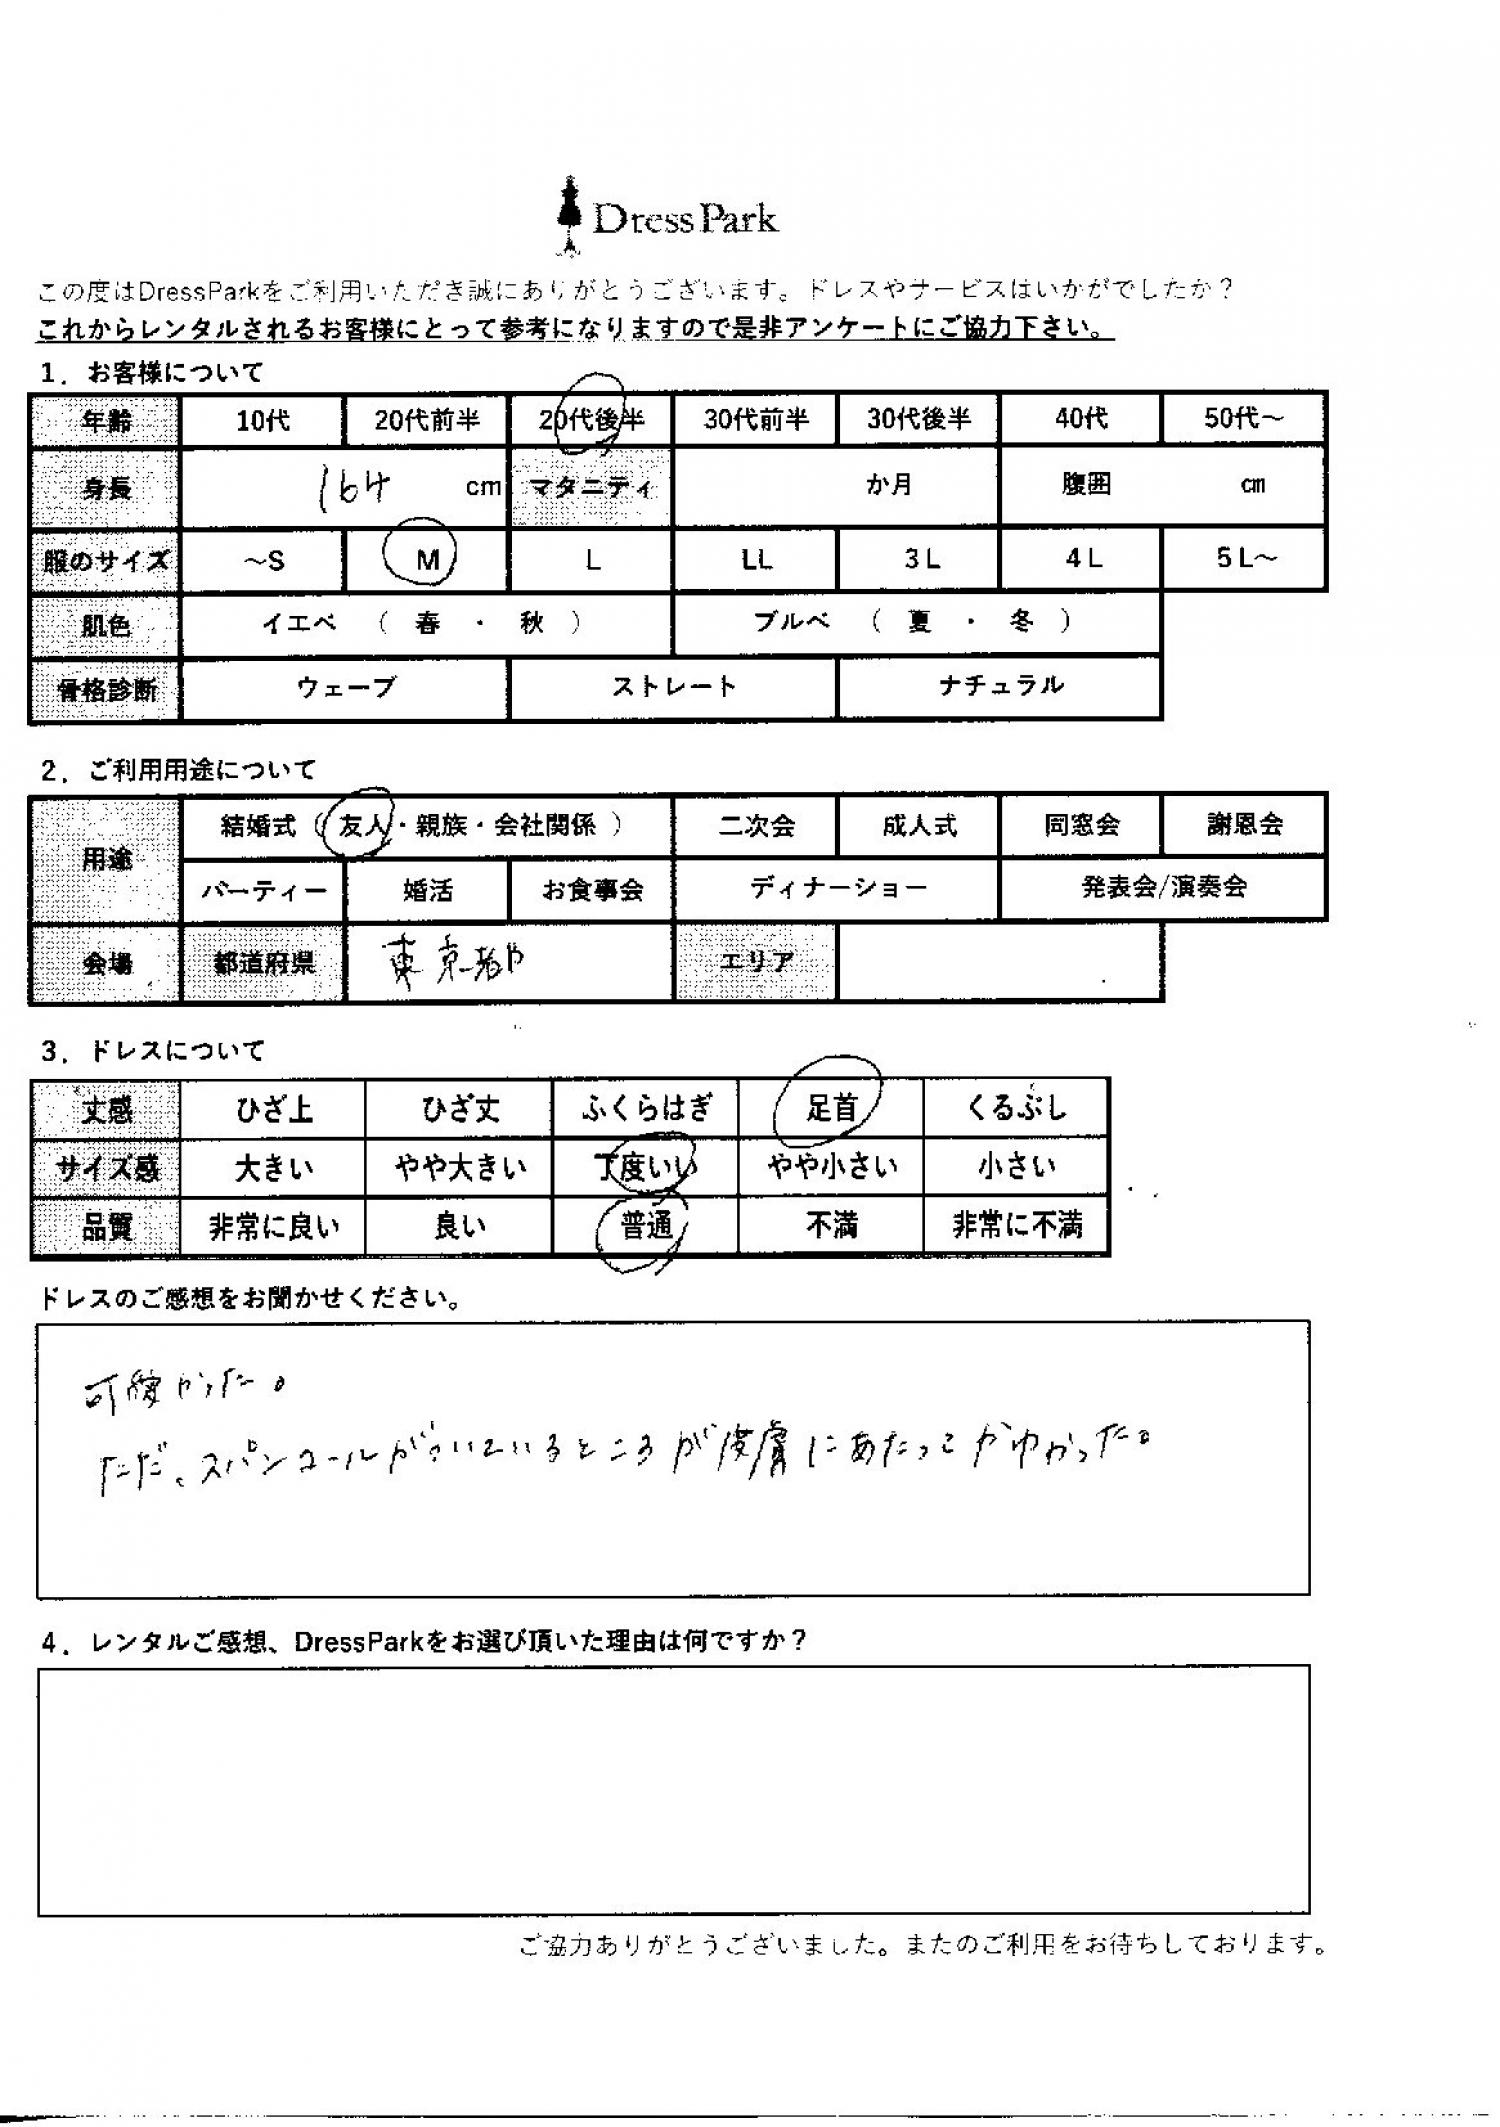 DressPark
この度はDressParkをご利用いただき誠にありがとうございます。ドレスやサービスはいかがでしたか？
これからレンタルされるお客様にとって参考になりますので是非アンケートにご協力下さい。
1．お客様について
年齢 10代 20代前半 20代後半 30代前半 30代後半 40代 50代～
身長 164 cm マタニティ か月 腹囲 cm
服のサイズ ～S M L LL 3L 4L 5L～
肌色 イエベ （ 春 ・ 秋 ） ブルベ （ 夏 ・ 冬 ）
骨格診断 ウェーブ ストレート ナチュラル
2．ご利用用途について
用途 結婚式（ 友人・親族・会社関係 ） 二次会 成人式 同窓会 謝恩会
パーティー 婚活 お食事会 ディナーショー 発表会/演奏会
会場 都道府県 東京都 エリア
3．ドレスについて
丈感 ひざ上 ひざ丈 ふくらはぎ 足首 くるぶし
サイズ感 大きい やや大きい 丁度いい やや小さい 小さい
品質 非常に良い 良い 普通 不満 非常に不満
ドレスのご感想をお聞かせください。
可愛かった。
ただ、スパンコールがついているところが皮膚にあたってかゆかった。
4．レンタルご感想、DressParkをお選び頂いた理由は何ですか？
ご協力ありがとうございました。またのご利用をお待ちしております。